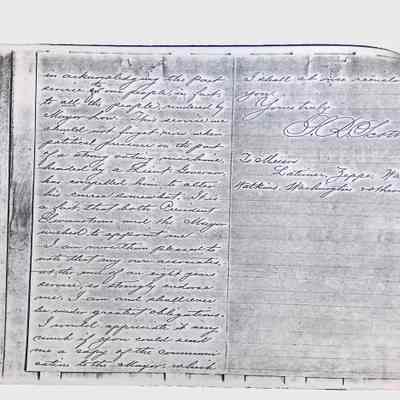 in acknowledging the past
service of our people, in fact,
to all the people, rendered by
Mayor Low. This service we
should not forget even when
political pressure on the part
of a strong voting machine
headed by a Lieut Governor
has compelled him to alter
his course somewhat. It is
a fact that both President
and the Mayor
wished to appoint me.
I am more than pleased to
note that my own associates,
at the end of an eight years
service, so strongly endorse
me. I am and shall ever
be under greatest obligations.
I would appreciate it very
much if you could send
me a copy of the communi
cation to the Mayor, which
I shall at once
you.
Yours truly,
To Messrs
Latimer, Zeppe,
Watkins, Washington, others